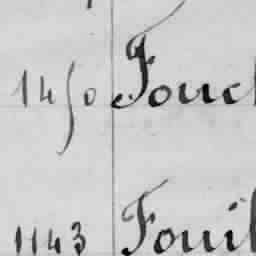 1450 Fouc
1143 Foui